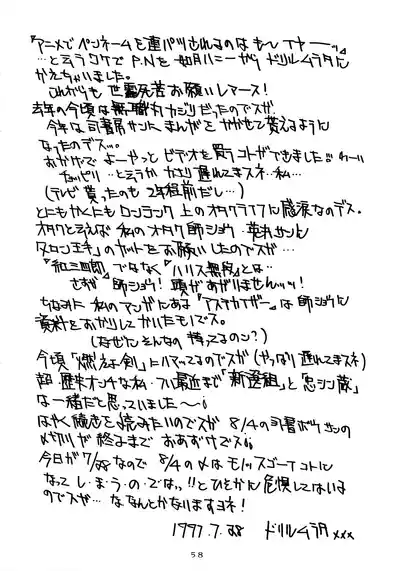 『アニメでペンネームを連パツされるのはもーイヤーッ』
…とミうワケでP.Nを如月ハニーからドリルムラタに
かえちゃいました。
これからも世露死苦お願いしマース!
去年の今頃は無職カジリだったのでスガ
今年は司書房サンにまんがをかかせて貰えるように
なったのデス…。
おかげでよーやっとビデオを買うコトができました!!
チョッピリ…とミうかかなり遅れてまスネ…私…
(テレビ貰ったのも2年程前だし…)
とにもかくにもロンラック上のオタクライフに感涙なのデス。
オタクと云えば私のオタク師ショウ
のカットをお願いしたのでスガ…
『紅三四郎』でなく『ハリス無段』とは…
さすが師ショウ!頭があがりませんッッ!
ちなみに私のマンガにある『アステカイザー』は師ショウに
資料をおかりしてかいたモノでス。
(なぜにそんなの持ってるのン?)
今頃『燃えよ剣』にハマってるのでスガ(やっぱり遅れてまスネ)
超・歴史オンチな私・つい最近まで『新選組』と『忠シン蔵』
な一緒だと思っていました〜
はやく続きを読みたいのでスガ8/4の司書ボウサンの
〆切りが終了までおあずけでス
今日が7/28なので8/4の〆はモノスゴーイコトに
なってし・ま・う・の・で・は…!!とひそかに危惧してはいる
のでスガ…ななんとかなりまスヨネ!
1997.7.28 ドリルムラタxxx
58